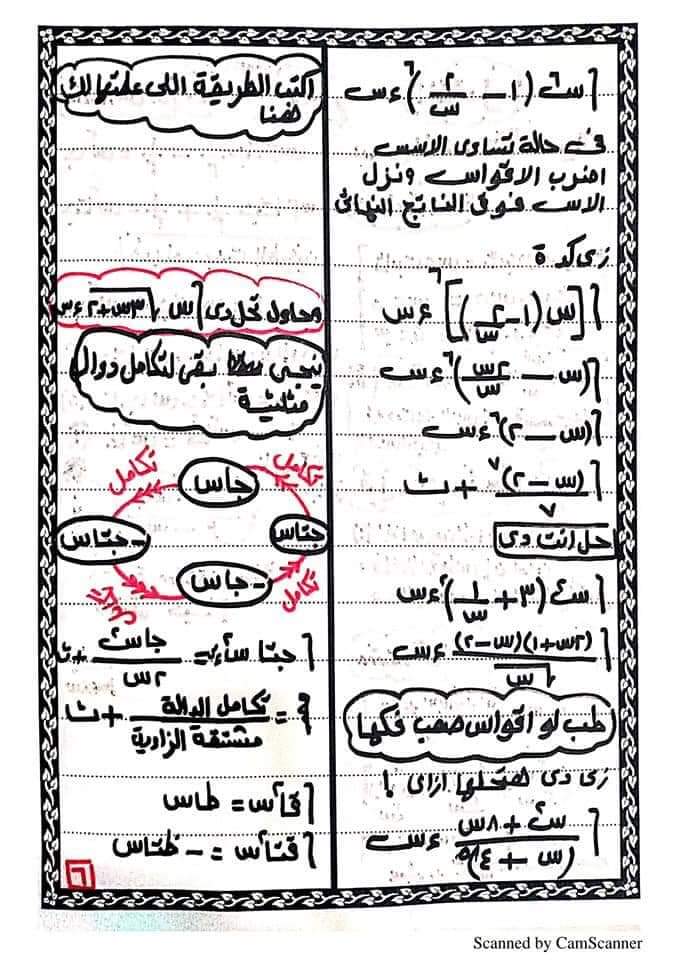 ∫ س٦ (١ − ٢/س)٦ ءس
فى حالة تساوى الاسس
اضرب الاقواس ونزل
الاس فوق الناتج النهائى
زى كدة
∫ [س (١ − ٢/س)]٦ ءس
∫ (س − ٢س/س)٦ ءس
∫ (س − ٢)٦ ءس
∫ (س − ٢)٧/٧ + ث
حل انت دى
∫ س٤ (٣ + ١/س)٤ ءس
∫ (٢س + ١)(س − ٢)/√س ءس
طب لو اقواس صعب فكها
زى دى هنحلها ازاى !
∫ (س٢ + ٨س)/(س + ٤)٥ ءس
اكتب الطريقة اللى علمتها لك
هنا
وحاول تحل دى ∫ س √٣س + ٢ ءس
بقى لتكامل دوال
مثلثية
جاس
تكامل
تكامل
جتاس
− جتاس
− جاس
تكامل
تكامل
∫ جتا س٢ ءس = جاس٢/٢س + ث
= تكامل الدالة/مشتقة الزاوية + ث
∫ قا٢س = طاس
∫ قتا٢س = − ظتاس
٦
Scanned by CamScanner